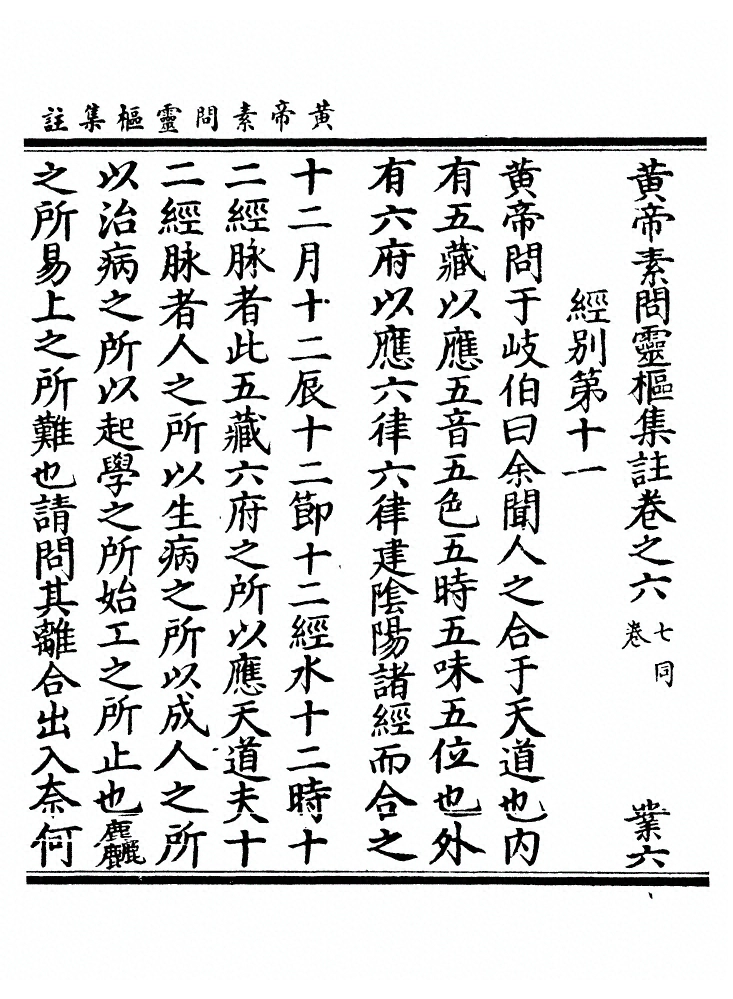 黃帝素問靈樞集註
黃帝素問靈樞集註卷之六 七同卷 業六
經別第十一
黃帝問于岐伯曰余聞人之合于天道也內
有五藏以應五音五色五時五味五位也外
有六府以應六律六律建陰陽諸經而合之
十二月十二辰十二節十二經水十二時十
二經脉者此五藏六府之所以應天道夫十
二經脉者人之所以生病之所以成人之所
以治病之所以起學之所始工之所止也麤
之所易上之所難也請問其離合出入奈何